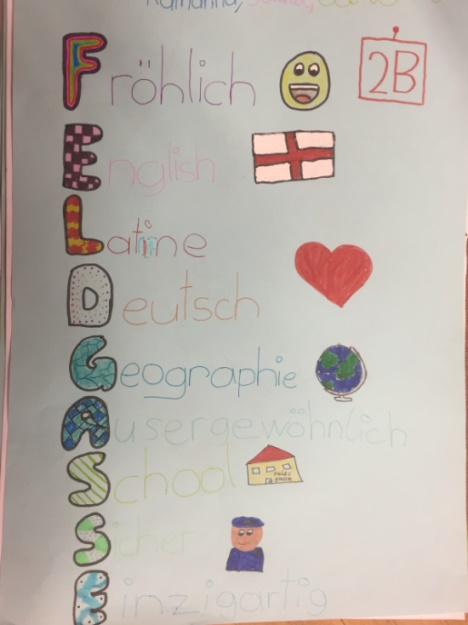 Fröhlich 2B
English
Latine
Deutsch
Geographie
Ausergewöhnlich
School
Sicher
Einzigartig